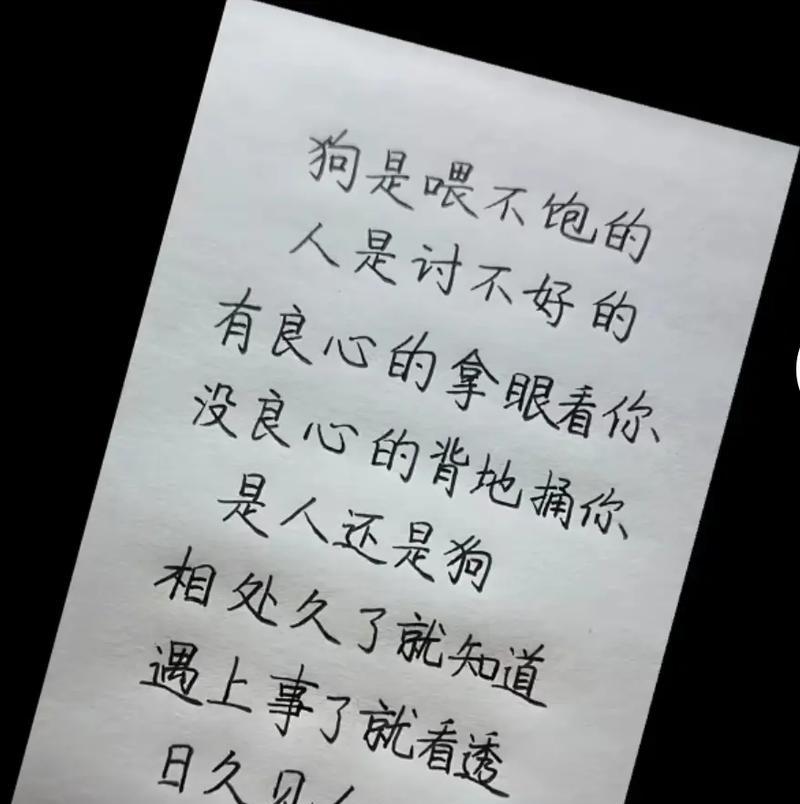 狗是喂不饱的
人是讨不好的
有良心的拿眼看你
没良心的背地捅你
是人还是狗
相处久了就知道
遇上事了就看透
日久见人